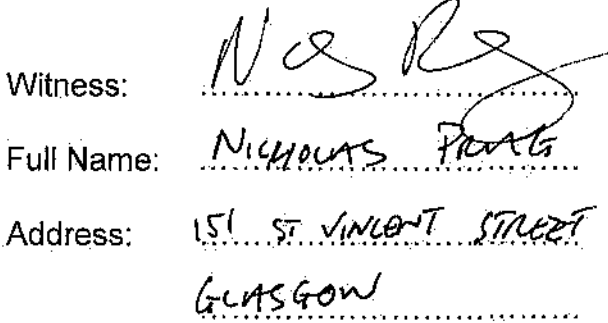 Witness:
Full Name: NICHOLAS PRAG
Address: 151 ST VINCENT STREET
GLASGOW